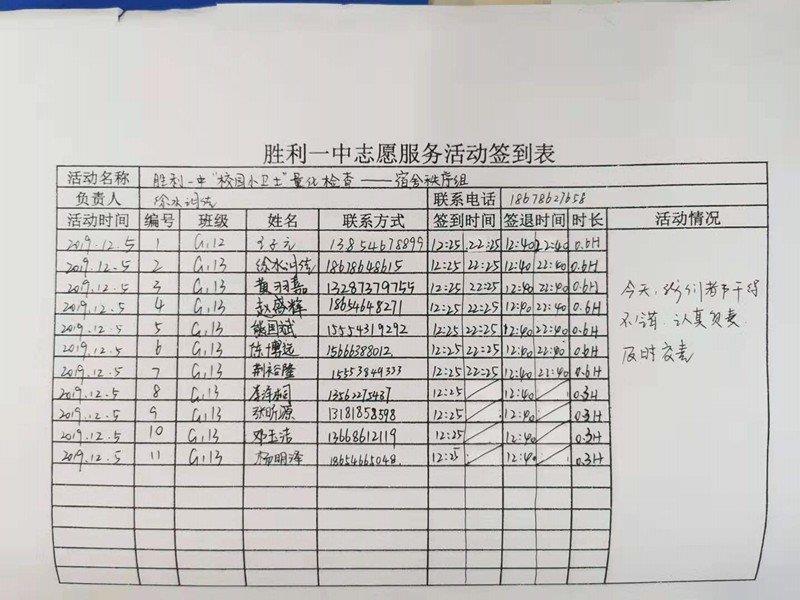 胜利一中志愿服务活动签到表
活动名称 胜利一中"校园小卫士"量化检查——宿舍秩序组
负责人 徐水训 联系电话 18678627658
活动时间 编号 班级 姓名 联系方式 签到时间 签退时间 时长 活动情况
2019.12.5 1 G.12 13854678899 12:25 22:25 12:40 22:40 0.6H
2019.12.5 2 G.13 徐水训 18678648615 12:25 22:25 12:40 22:40 0.6H
2019.12.5 3 G.13 黄羽嘉 13287379755 12:25 22:25 12:40 22:40 0.6H
2019.12.5 4 G.13 赵盛辉 18654648271 12:25 22:25 12:40 22:40 0.6H
2019.12.5 5 G.13 国斌 15554319292 12:25 22:25 12:40 22:40 0.6H
2019.12.5 6 G.13 陈博远 15666388012 12:25 22:25 12:40 22:40 0.6H
2019.12.5 7 G.13 荆裕隆 15553849333 12:25 22:25 12:40 22:40 0.6H
2019.12.5 8 G.13 李泽桐 13562275437 12:25 12:40 0.3H
2019.12.5 9 G.13 张昕源 13181858598 12:25 12:40 0.3H
2019.12.5 10 G.13 邓玉洁 13668612119 12:25 12:40 0.3H
2019.12.5 11 G.13 杨明泽 18654665048 12:25 12:40 0.3H
今天,孩们都干得
不错,认真负责,
及时交表